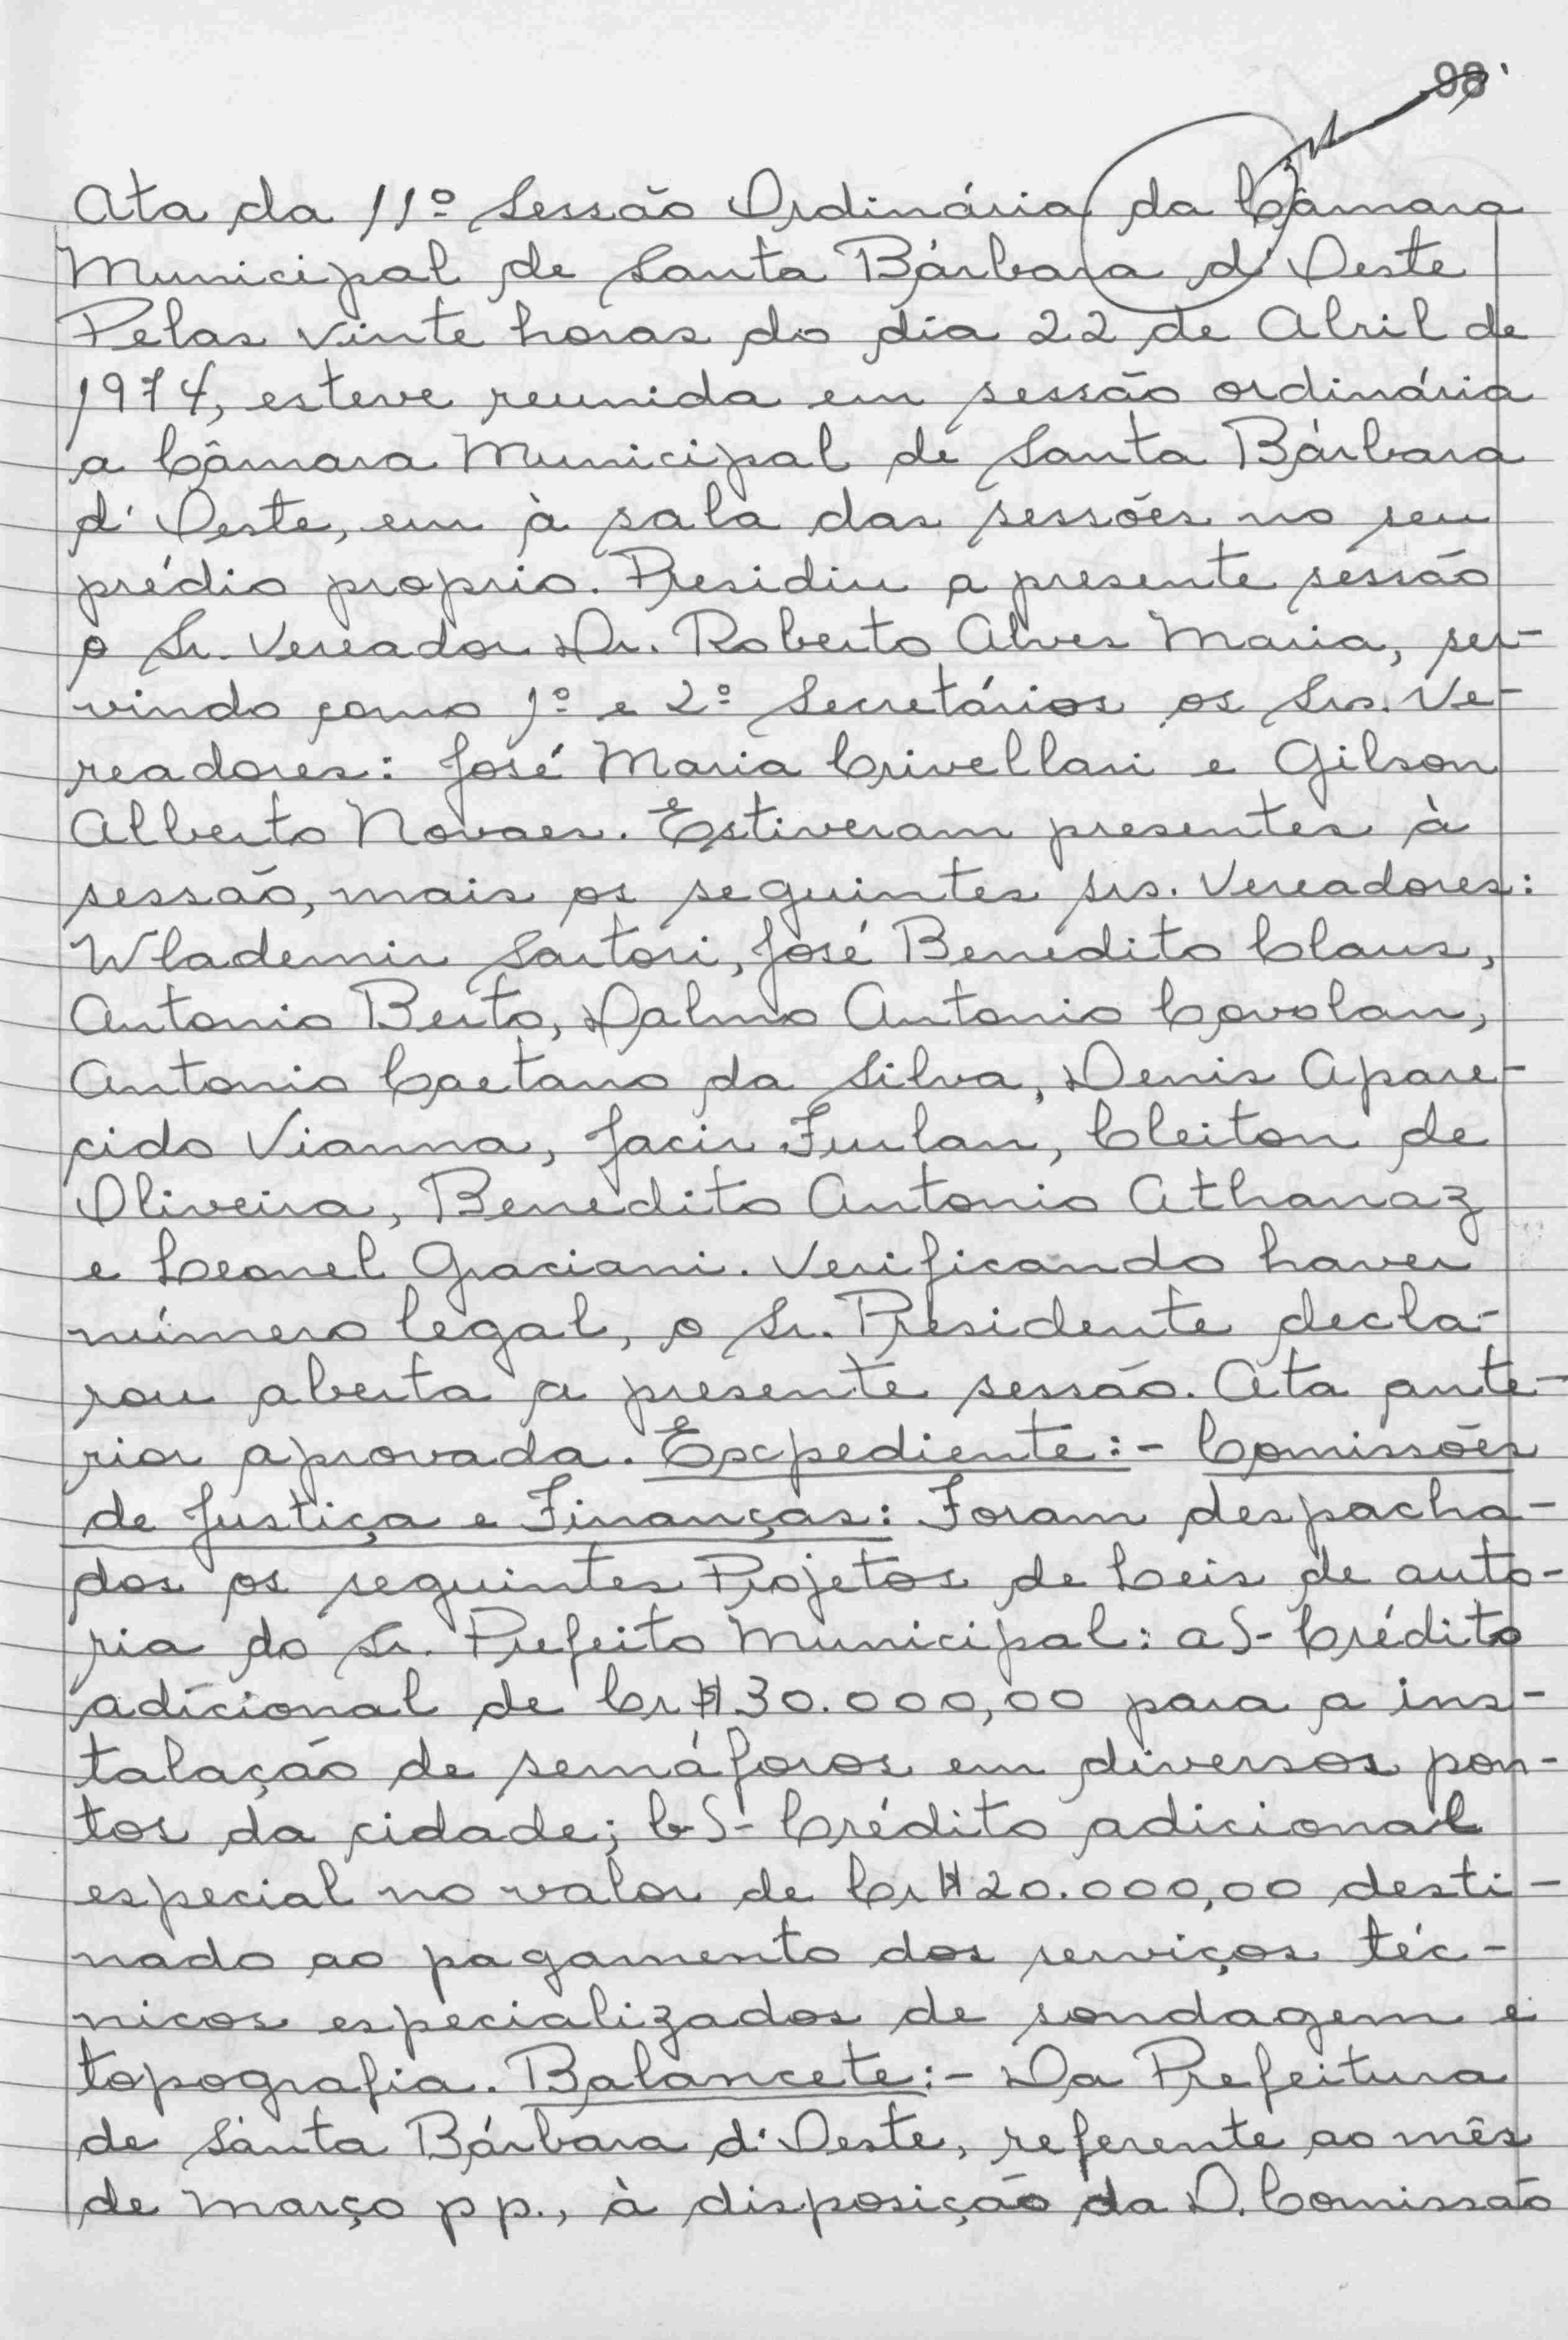 98
Ata da 11º Sessão Ordinária da Câmara
Municipal de Santa Bárbara d'Oeste
Pelas vinte horas do dia 22 de Abril de
1974, esteve reunida em sessão ordinária
a Câmara Municipal de Santa Bárbara
d'Oeste, em à sala das sessões no seu
prédio proprio. Presidiu a presente sessão
o Sr. Vereador Dr. Roberto Alves Maria, ser-
vindo como 1º e 2º Secretários os Srs. Ve-
readores: José Maria Crivellari e Gilson
Alberto Novaes. Estiveram presentes à
sessão, mais os seguintes srs. Vereadores:
Wlademir Sartori, José Benedito Claus,
Antonio Berto, Dalmo Antonio Covolan,
Antonio Caetano da Silva, Denis Apare-
cido Vianna, Jacir Furlan, Cleiton de
Oliveira, Benedito Antonio Athanaz
e Leonel Graciani. Verificando haver
número legal, o Sr. Presidente decla-
rou aberta a presente sessão. Ata ante-
rior aprovada. Expediente:- Comissões
de Justiça e Finanças: Foram despacha-
dos os seguintes Projetos de Leis de auto-
ria do Sr. Prefeito Municipal: a)- Crédito
adicional de Cr$30.000,00 para a ins-
talação de semáforos em diversos pon-
tos da cidade; b)- Crédito adicional
especial no valor de Cr$20.000,00 desti-
nado ao pagamento dos serviços téc-
nicos especializados de sondagem e
topografia. Balancete:- Da Prefeitura
de Santa Bárbara d'Oeste, referente ao mês
de março pp., à disposição da D. Comissão